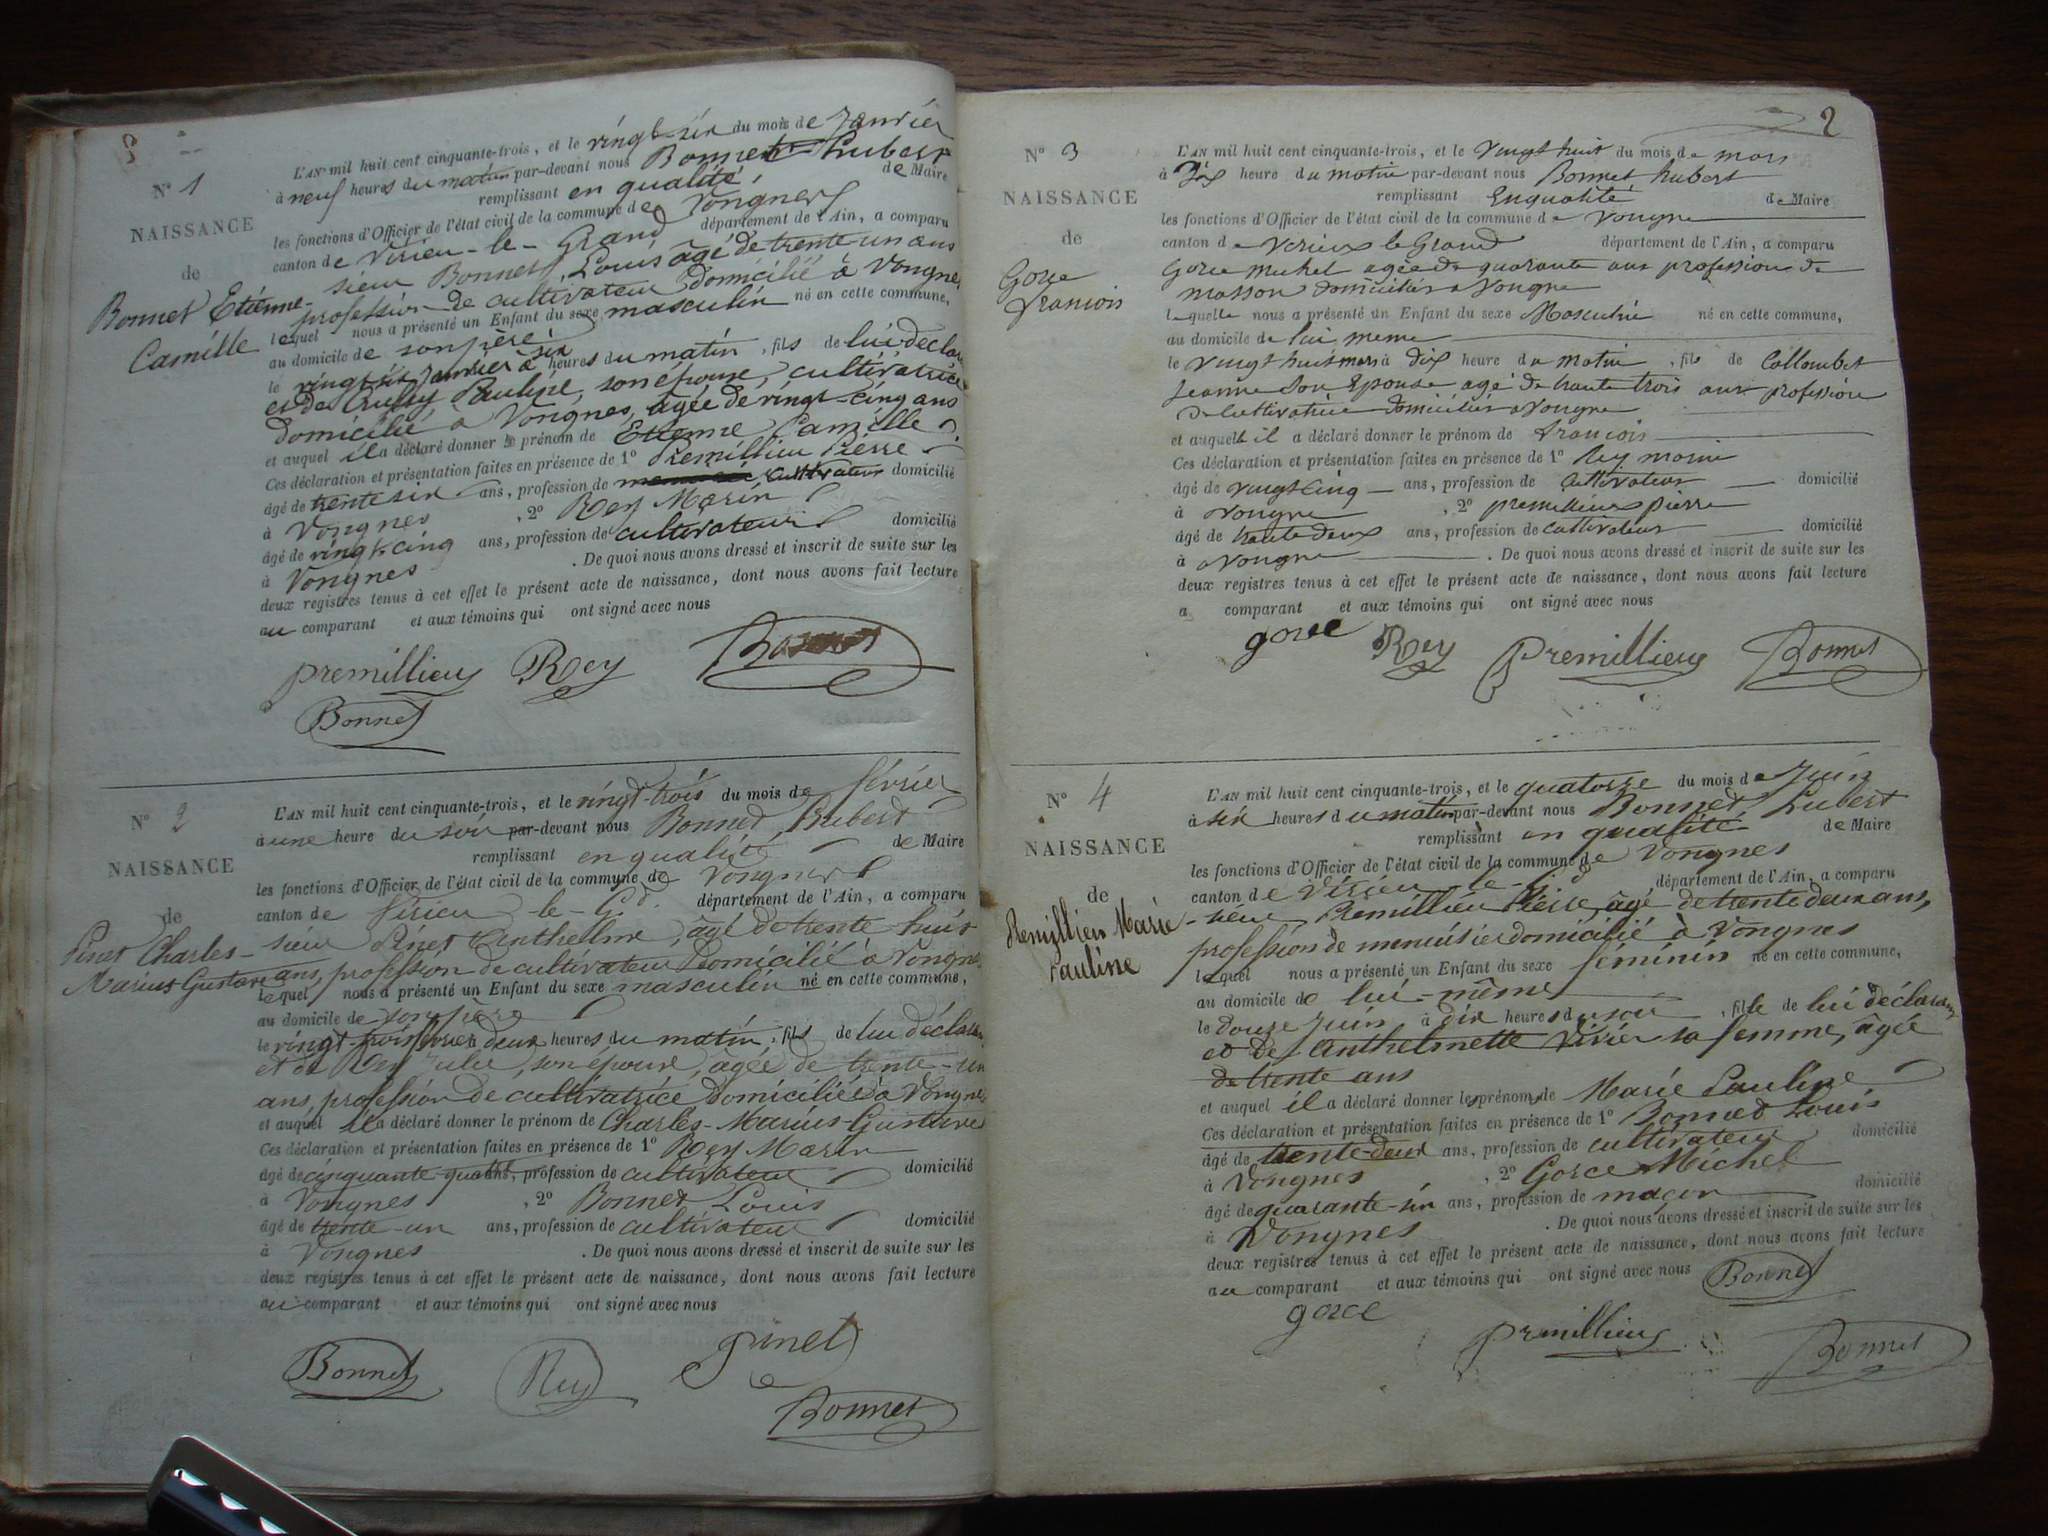 N° 1
NAISSANCE
de
Bonnet Etienne-
Camille
L'AN mil huit cent cinquante-trois, et le vingt-six du mois de Janvier
à neuf heures du matin par-devant nous Bonnet hubert
remplissant en qualité de Maire
les fonctions d'Officier de l'état civil de la commune de Vongnes
canton de Virieu-le-Grand département de l'Ain, a comparu
sieur Bonnet Louis âgé de trente-un ans
profession de cultivateur domicilié à Vongnes
lequel nous a présenté un Enfant du sexe masculin né en cette commune,
au domicile de son père
le vingt-six Janvier à six heures du matin, fils de lui déclarant
et de Pauline, son épouse, cultivatrice
domicilié à Vongnes, âgée de vingt-cinq ans
et auquel il a déclaré donner le prénom de Etienne Camille
Ces déclaration et présentation faites en présence de 1° Premillieu Pierre
âgé de trente six ans, profession de cultivateur domicilié
à Vongnes, 2° Rey Marin
âgé de vingt-cinq ans, profession de cultivateur domicilié
à Vongnes. De quoi nous avons dressé et inscrit de suite sur les
deux registres tenus à cet effet le présent acte de naissance, dont nous avons fait lecture
au comparant et aux témoins qui ont signé avec nous
premillieu Rey Bonnet
Bonnet
N° 2
NAISSANCE
de
Pinet Charles-
Marius Gustave
L'AN mil huit cent cinquante-trois, et le vingt-trois du mois de février
à une heure du soir par-devant nous Bonnet hubert
remplissant en qualité de Maire
les fonctions d'Officier de l'état civil de la commune de Vongnes
canton de Virieu-le-Gd. département de l'Ain, a comparu
sieur Pinet Anthelme, âgé de trente huit
ans, profession de cultivateur domicilié à Vongnes
lequel nous a présenté un Enfant du sexe masculin né en cette commune,
au domicile de son père
le vingt-trois février à deux heures du matin, fils de lui déclarant
et de Rey Julie, son épouse, âgée de trente-un
ans, profession de cultivatrice domiciliée à Vongnes
et auquel il a déclaré donner le prénom de Charles-Marius-Gustave
Ces déclaration et présentation faites en présence de 1° Rey Marin
âgé de cinquante-quatre ans, profession de cultivateur domicilié
à Vongnes, 2° Bonnet Louis
âgé de trente-un ans, profession de cultivateur domicilié
à Vongnes. De quoi nous avons dressé et inscrit de suite sur les
deux registres tenus à cet effet le présent acte de naissance, dont nous avons fait lecture
au comparant et aux témoins qui ont signé avec nous
Bonnet Rey pinet
Bonnet
2
N° 3
NAISSANCE
de
Gorce
francois
L'AN mil huit cent cinquante-trois, et le vingt huit du mois de mars
à dix heure du matin par-devant nous Bonnet hubert
remplissant Enqualité de Maire
les fonctions d'Officier de l'état civil de la commune de vongne
canton de verieux le Grand département de l'Ain, a comparu
Gorce michel agée de quarante ans profession de
masson domiciliés a vongne
lequelle nous a présenté un Enfant du sexe Masculin né en cette commune,
au domicile de lui meme
le vingt huit mars à dix heure du matin, fils de Colloumbet
Jeanne son Epouse agé de trante trois ans profession
de Cultivatrice domiciliés a vongne
et auquelle il a déclaré donner le prénom de francois
Ces déclaration et présentation faites en présence de 1° Rey marin
âgé de vingt cinq ans, profession de cultivateur domicilié
à vongne, 2° premillieu pierre
âgé de trante deux ans, profession de cultivateur domicilié
à vongne. De quoi nous avons dressé et inscrit de suite sur les
deux registres tenus à cet effet le présent acte de naissance, dont nous avons fait lecture
a comparant et aux témoins qui ont signé avec nous
gorce Rey Premillieu Bonnet
N° 4
NAISSANCE
de
Premillieu Marie
Pauline
L'AN mil huit cent cinquante-trois, et le quatorze du mois de Juin
à six heures du matin par-devant nous Bonnet hubert
remplissant en qualité de Maire
les fonctions d'Officier de l'état civil de la commune de Vongnes
canton de Virieu-le-Gd département de l'Ain, a comparu
sieur Premillieu Pierre, âgé de trente deux ans,
profession de menuisier domicilié à Vongnes
lequel nous a présenté un Enfant du sexe féminin né en cette commune,
au domicile de lui-même
le douze Juin à dix heures du soir, fille de lui déclarant
et de Anthelmette Virier sa femme, âgée
de trente ans
et auquel il a déclaré donner les prénoms de Marie Pauline
Ces déclaration et présentation faites en présence de 1° Bonnet Louis
âgé de trente-deux ans, profession de cultivateur domicilié
à Vongnes, 2° Gorce Michel
âgé de quarante-six ans, profession de maçon domicilié
à Vongnes. De quoi nous avons dressé et inscrit de suite sur les
deux registres tenus à cet effet le présent acte de naissance, dont nous avons fait lecture
au comparant et aux témoins qui ont signé avec nous Bonnet
gorce premillieu Bonnet